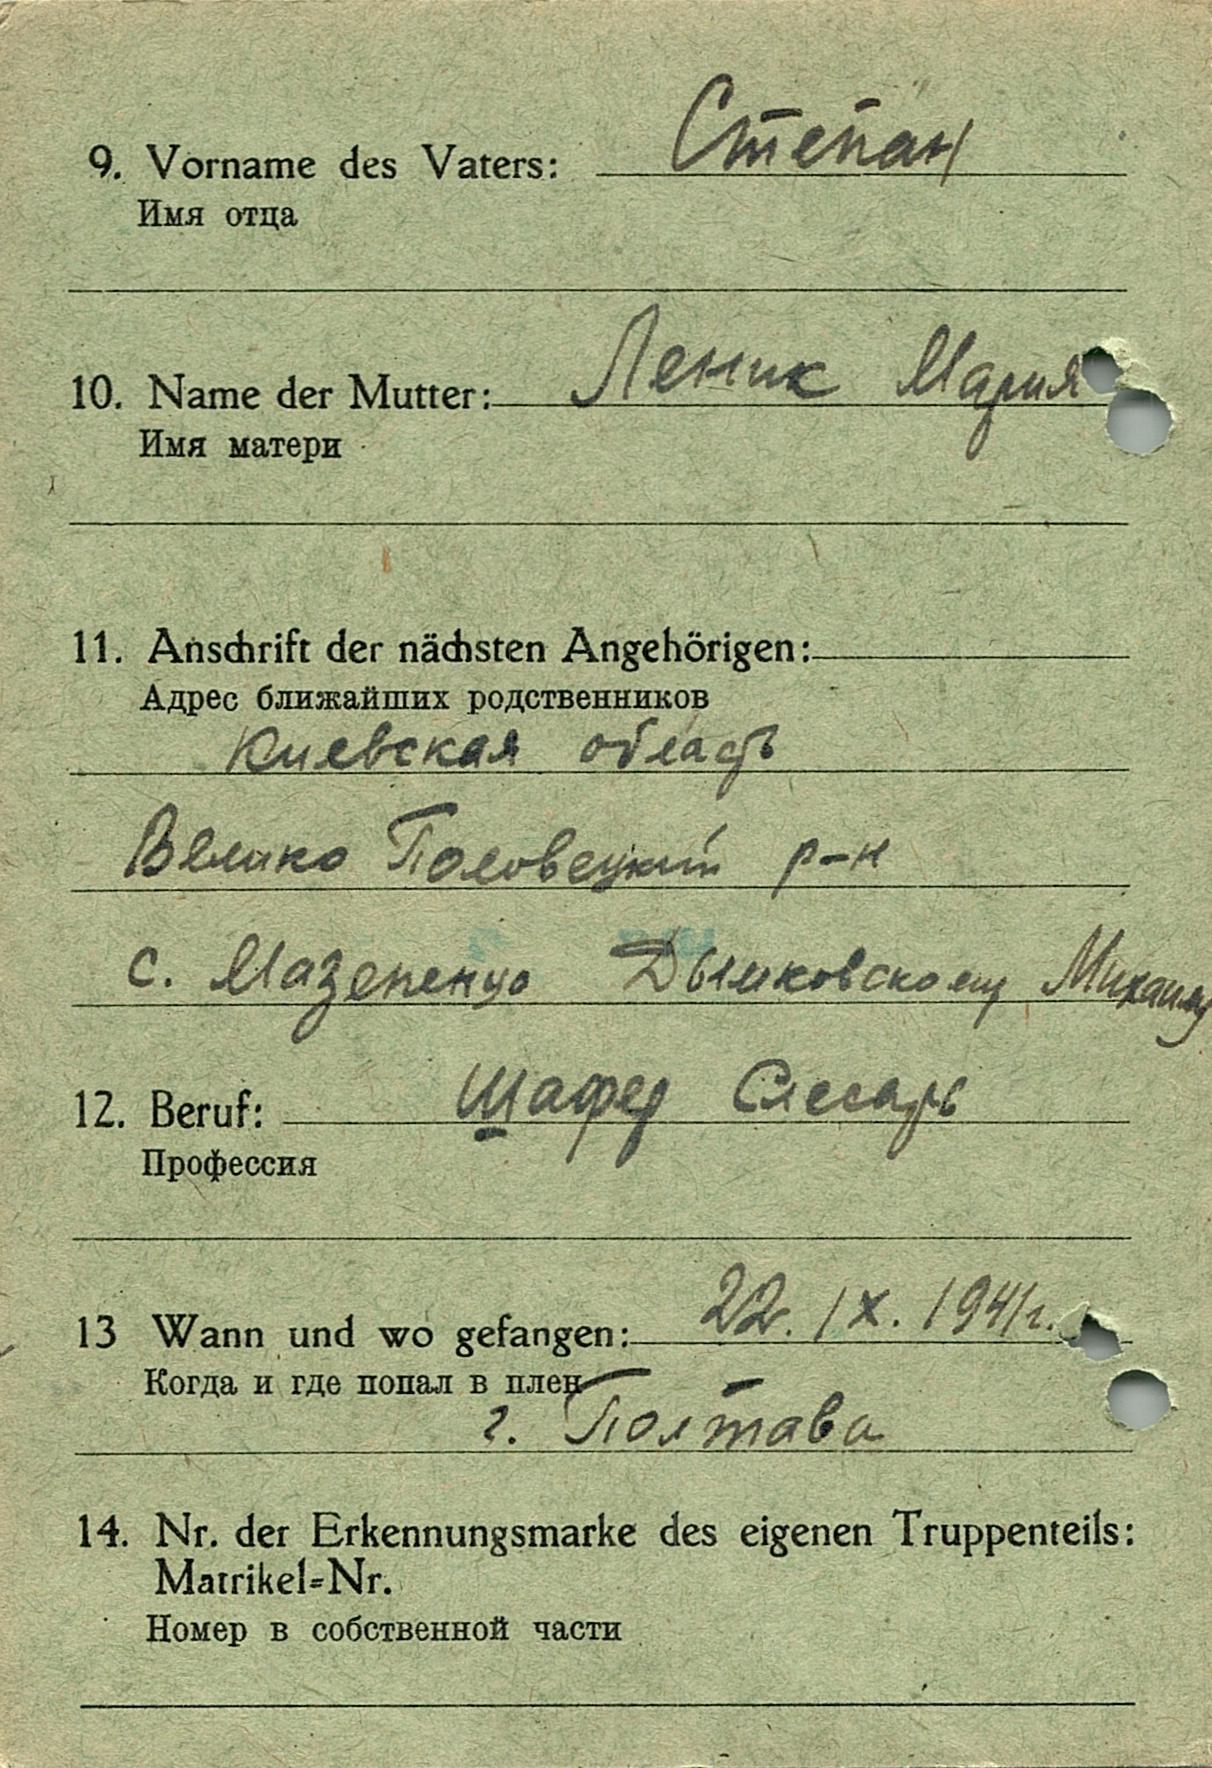 Степан
9. Vorname des Vaters:
Имя отца
Леник Мария
10. Name der Mutter:
Имя матери
11. Anschrift der nächsten Angehörigen:
Адрес ближайших родственников
Киевская область
Велико Половецкий р-н
с. Мазепенцо Дымковскому Михаилу
12. Beruf: Шофер Слесарь
Профессия
13 Wann und wo gefangen: 22. IX. 1941г.
Когда и где попал в плен
г. Полтава
14. Nr. der Erkennungsmarke des eigenen Truppenteils:
Matrikel=Nr.
Номер в собственной части